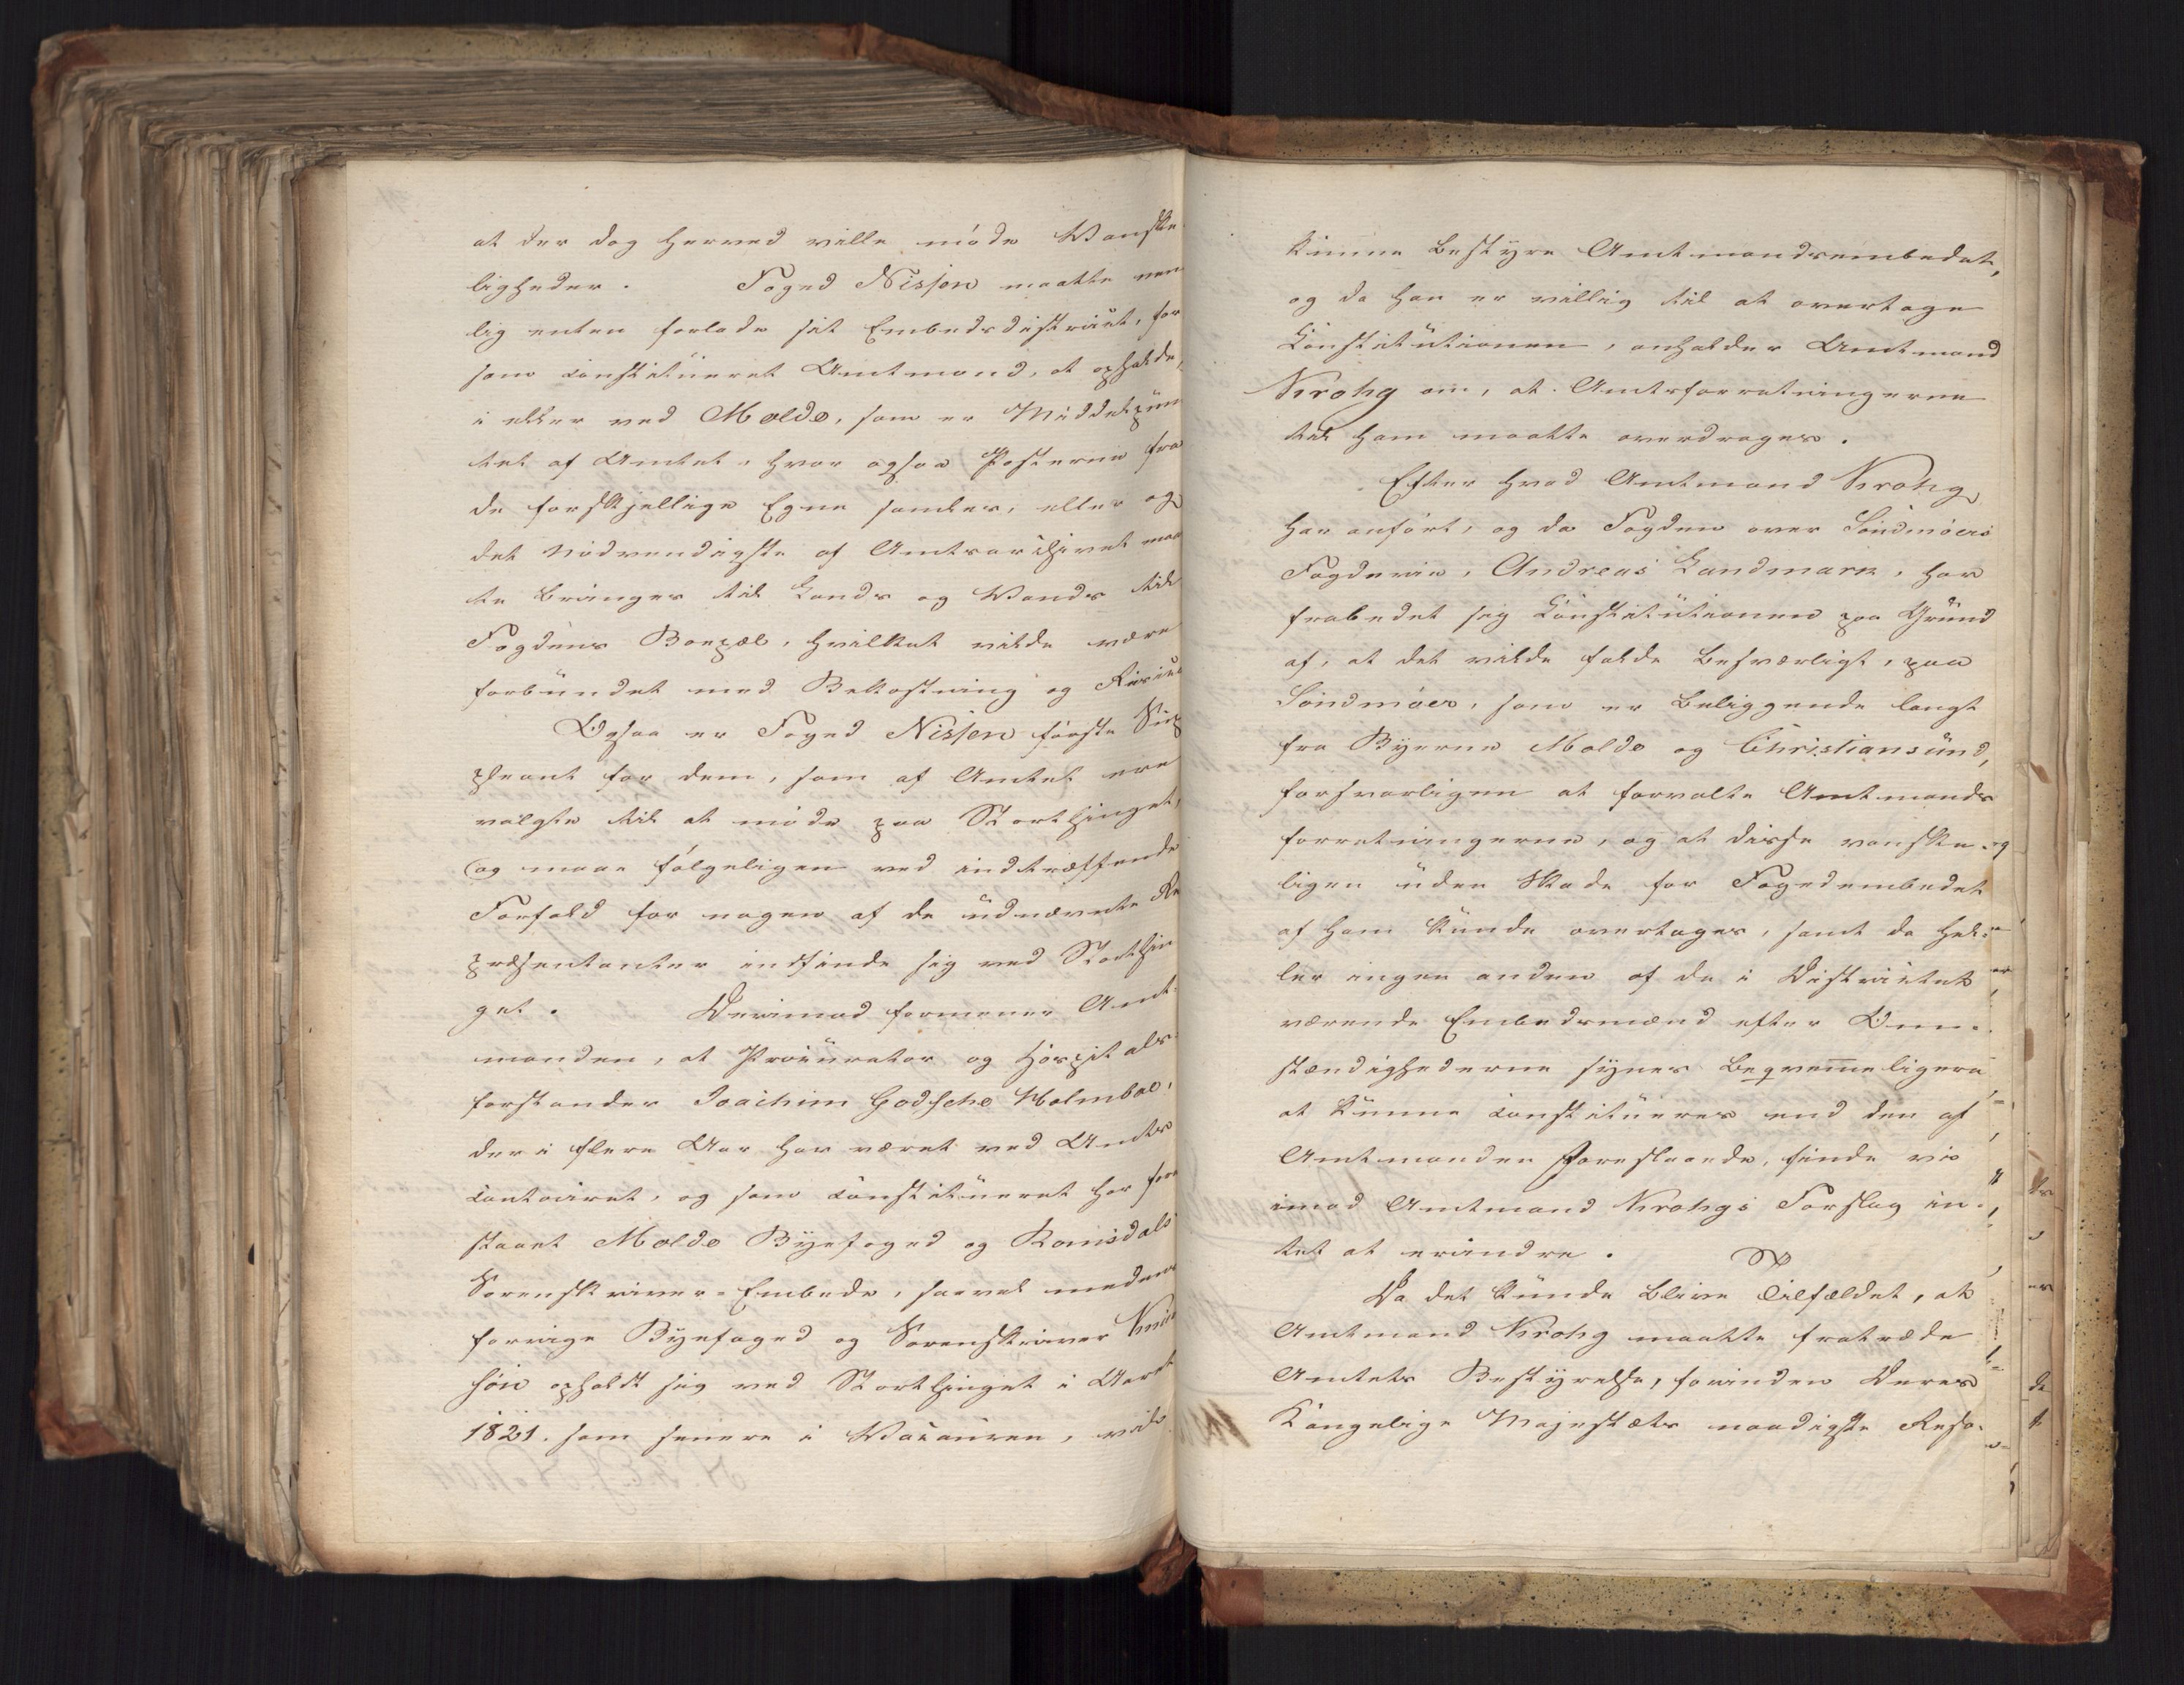 at der dog herved ville møde Vanske
ligheder. Foged Nissen maatte nem
lig enten forlade sit Embedsdistrict, for
som constitueret Amtmand, at opholde,
i eller ved Molde, som er Middelpun
tet af Amtet, hvor ogsaa Posterne fra
de forskjellige Egne samles, eller og
det nødvendigste af Amtsarchivet maa
te bringes til Lands og Vands til
Fogdens Boepæl, hvilket vilde være
forbundet med Bekostning og Risico
Ogsaa er Foged Nissen første Sup
pleant for dem, som af Amtet ere
valgte til at møde paa Storthinget,
og maae følgeligen ved indtræffende
Forfald for nogen af de udnævnte Re
præsentanter indfinde sig ved Storthin
get. Derimod formener Amt-
manden, at Procurator og Hospitals-
forstander Joachim Godsche Holmboe,
der i flere Aar har været ved Amts
Contoiret, og som constitueret har fore
staaet Molde Byefoged og Romsdals
Sorenskriver-Embede, saavel medens
forrige Byefoged og Sorenskriver Knud
søn opholdt sig ved Storthinget i Aaret
1821. som senere i Vacancen, vil
kunne bestyre Amtmandsembedet,
og da han er villig til at overtage
Constitutionen, anholder Amtmand
Krohg om, at Amtsforretningerne
til ham maatte overdrages.
Efter hvad Amtmand Krohg
har anført, og da Fogden over Söndmöers
Fogderie, Andreas Landmark, har
frabedet sig Constitutionen paa Grund
af, at det vilde falde besværligt, paa
Söndmöer, som er beliggende langt
fra Byerne Molde og Christiansund,
forsvarligen at forvalte Amtmands
forretningerne, og at disse vanske-
ligen uden Skade for Fogedembedet
af ham kunde overtages, samt da hel-
ler ingen anden af de i Districtet
værende Embedsmænd efter Om-
stændighederne synes beqvemmeligere
at kunne constitueres end den af
Amtmanden foreslaaede, finde vi
imod Amtmand Krohgs Forslag in-
tet at erindre.
Da det kunde blive Tilfældet, at
Amtmand Krohg maatte fratræde
Amtets Bestyrelse, forinden Deres
Kongelige Majestæts naadigste Reso-